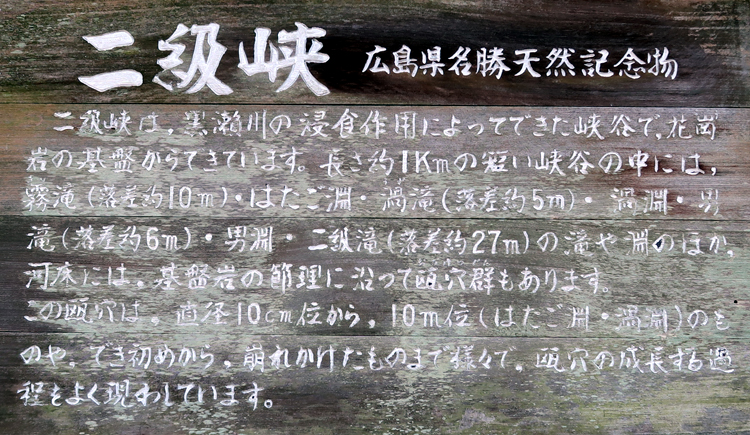 二級峡 広島県名勝天然記念物
二級峡は，黒瀬川の浸食作用によってできた峡谷で，花崗
岩の基盤からできています。長さ約1Kmの短い峡谷の中には，
霧滝(落差約10m)・はたご淵・渦滝(落差約5m)・渦淵・男
滝(落差約6m)・男淵・二級滝(落差約27m)の滝や淵のほか，
河床には，基盤岩の節理に沿って甌穴群もあります。
この甌穴は，直径10cm位から，10m位(はたご淵・渦淵)のも
のや，でき初めから，崩れかけたものまで様々で，甌穴の成長する過
程をよく現わしています。